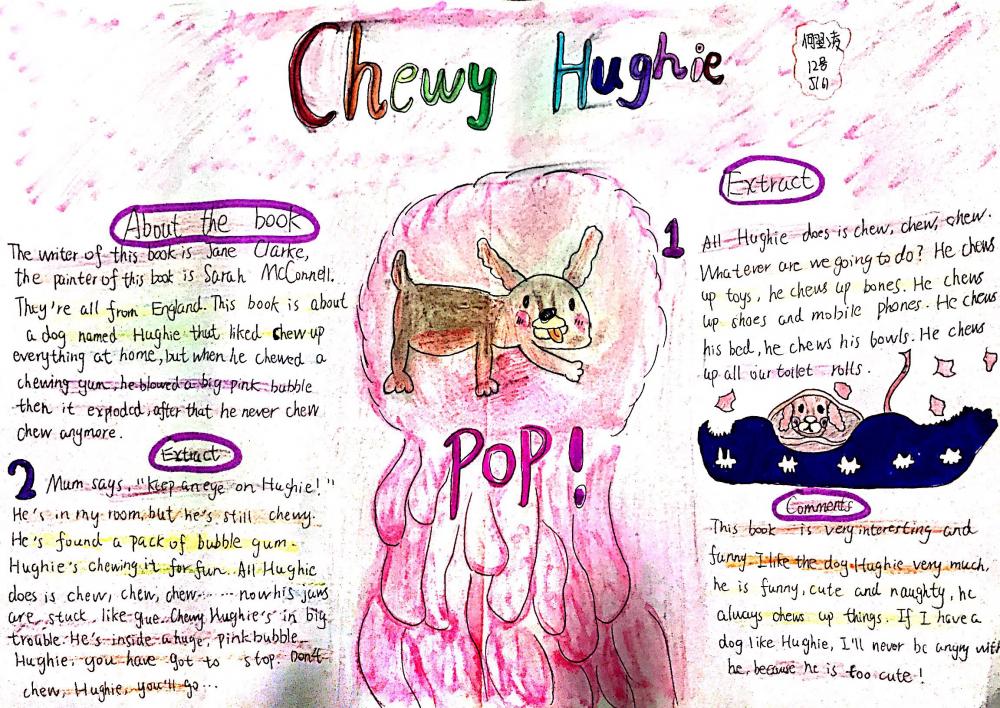 Chewy Hughie
何翌涛
12号
5(6)
About the book
The writer of this book is Jane Clarke,
the painter of this book is Sarah McConnell.
They're all from England. This book is about
a dog named Hughie that liked chew up
everything at home, but when he chewed a
chewing gum, he blowed a big pink bubble
then it expoded, after that he never chew
chew anymore.
Extract
2 Mum says, "keep an eye on Hughie!"
He's in my room, but he's still chewy.
He's found a pack of bubble gum.
Hughie's chewing it for fun. All Hughie
does is chew, chew, chew...... now his jaws
are stuck like glue. Chewy Hughie's in big
trouble. He's inside a huge, pink bubble
Hughie, you have got to stop. Don't
chew, Hughie, you'll go...
POP!
Extract
1 All Hughie does is chew, chew, chew.
Whatever are we going to do? He chews
up toys, he chews up bones. He chews
up shoes and mobile phones. He chews
his bed, he chews his bowls. He chews
up all our toilet rolls.
Comments
This book is very interesting and
funny. I like the dog Hughie very much,
he is funny, cute and naughty, he
always chews up things. If I have a
dog like Hughie, I'll never be angry with
he, because he is too cute!